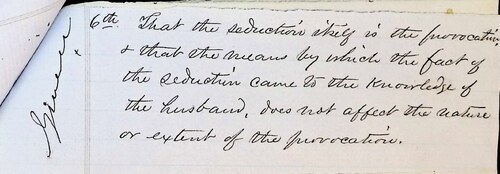 6th That the seduction itself is the provocation,
& that the means by which the fact of
the seduction came to the knowledge of
the husband, does not affect the nature
or extent of the provocation.
Given